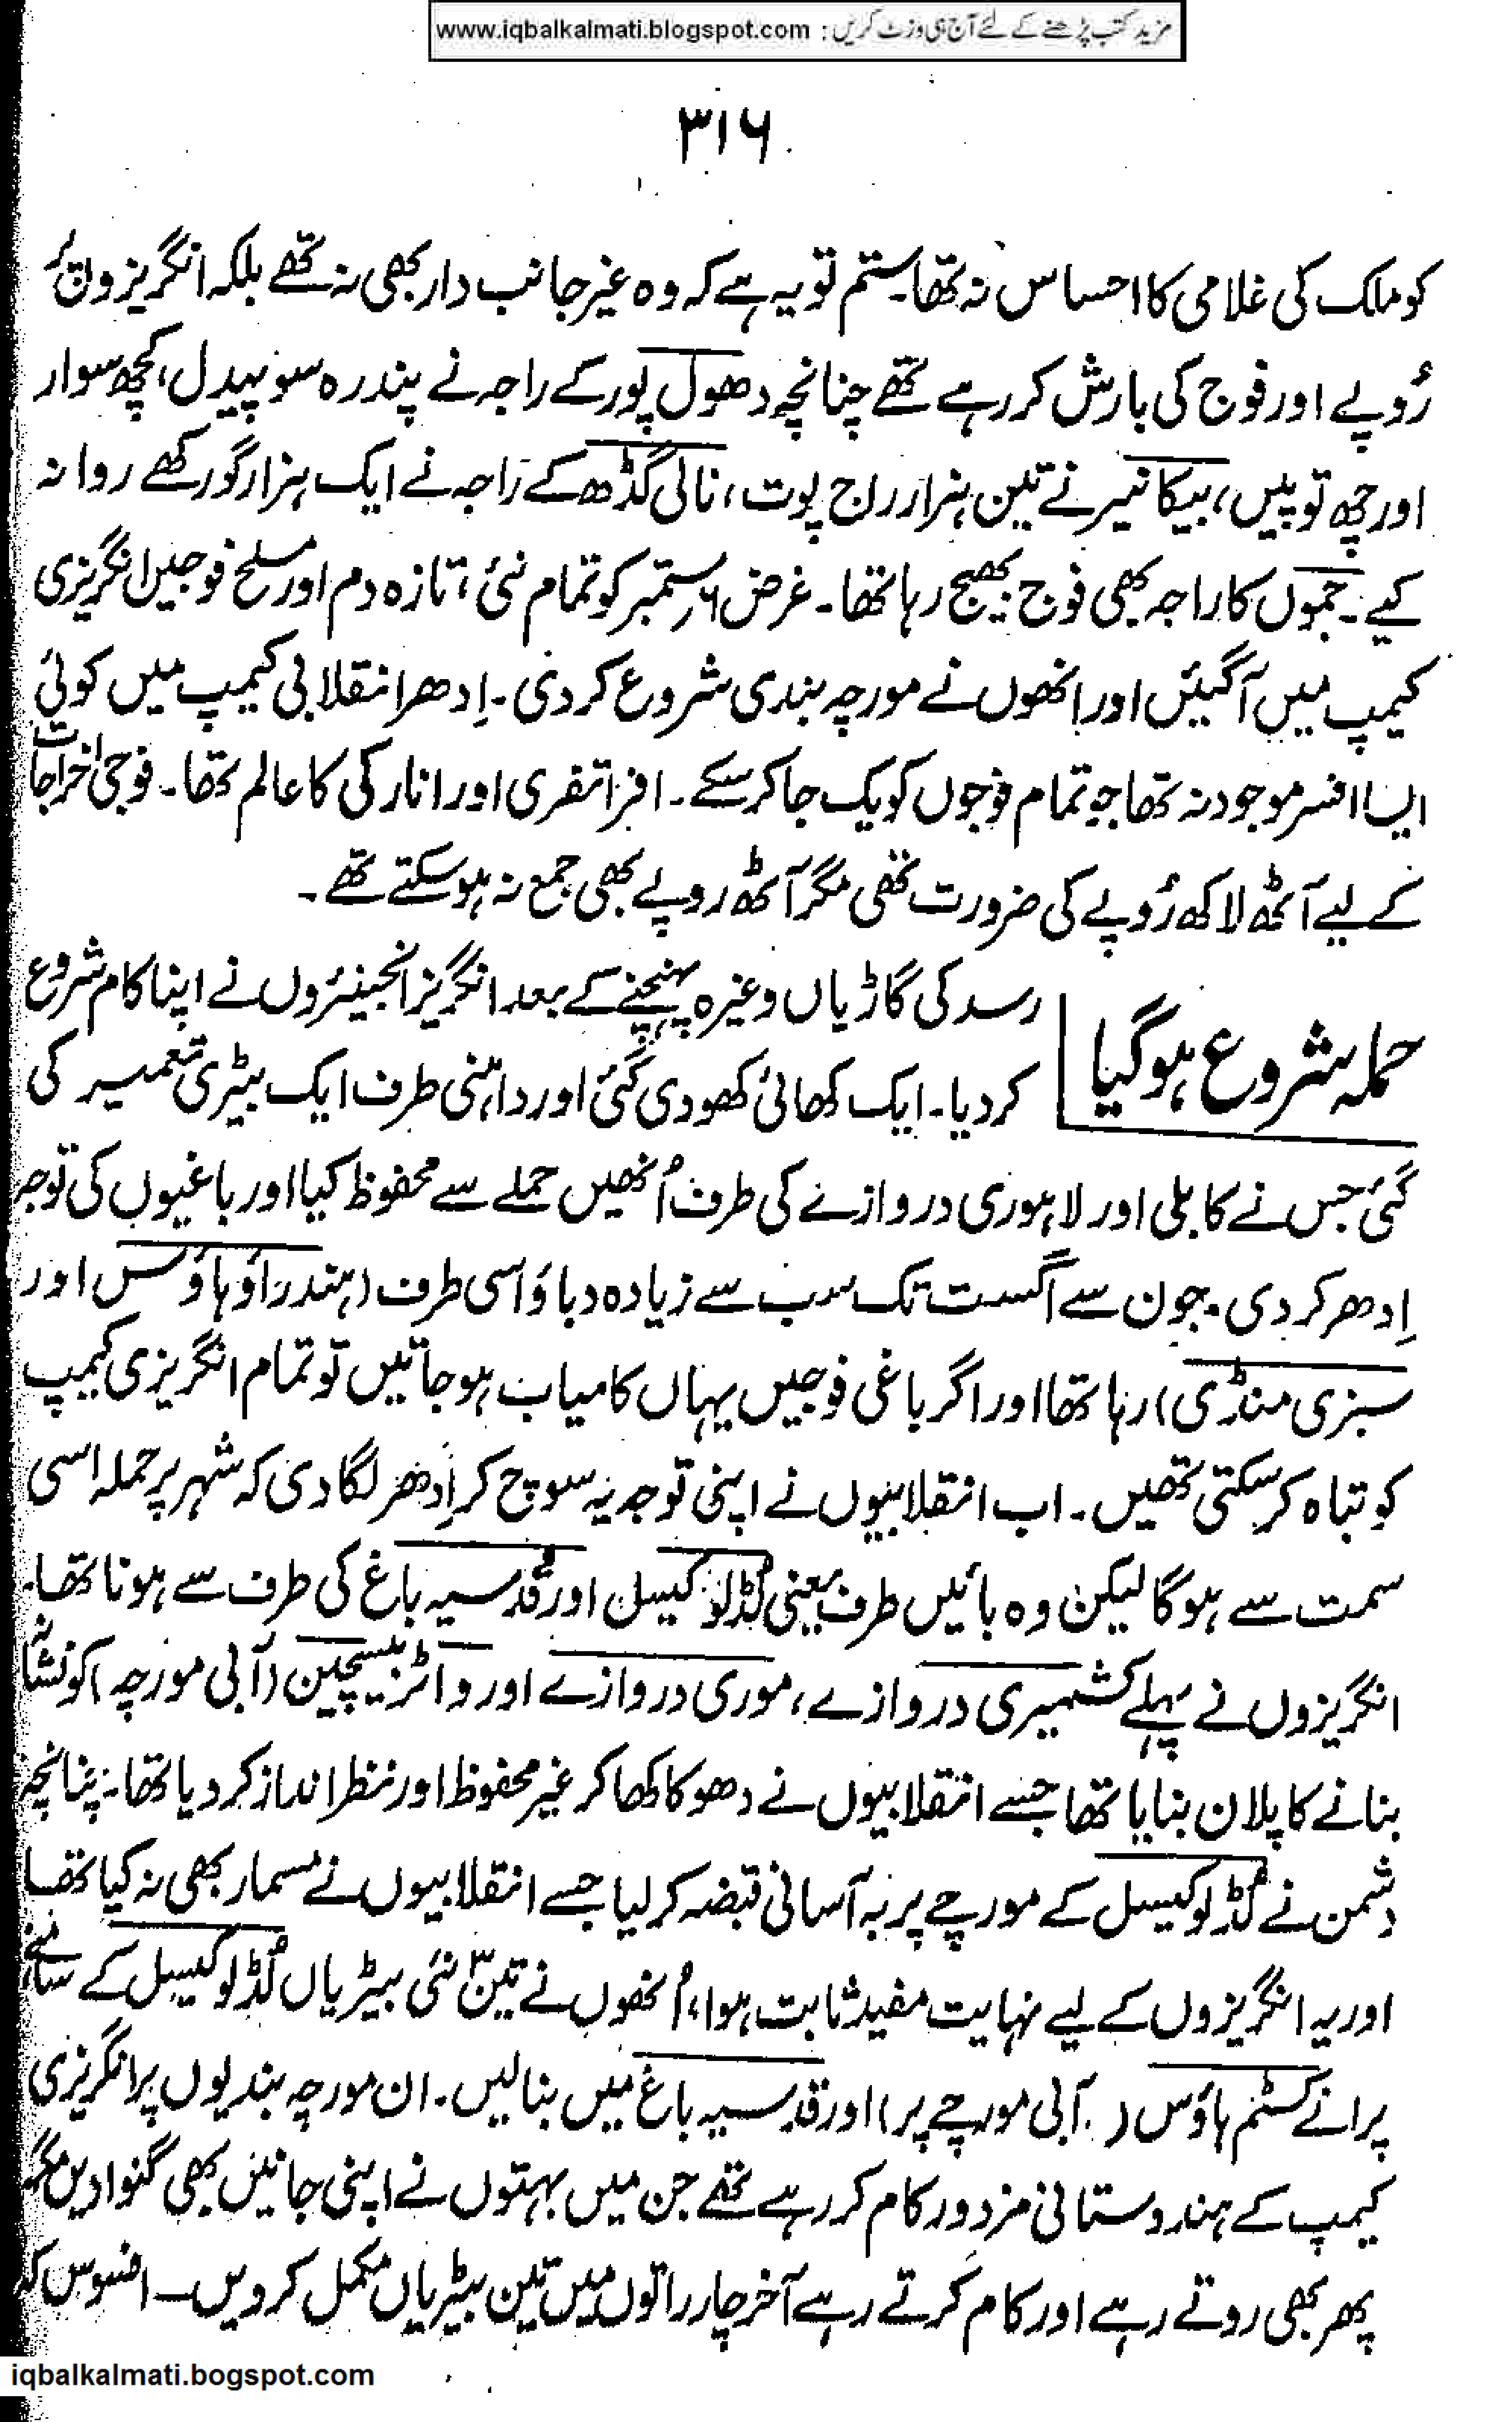 مزید کتب پڑھنے کے لئے آج ہی وزٹ کریں : www.iqbalkalmati.blogspot.com
۳۱۶
کو ملک کی غلامی کا احساس نہ تھا۔ ستم تو یہ ہے کہ وہ غیر جانب دار بھی نہ تھے بلکہ انگریزوں پر
رُوپے اور فوج کی بارش کر رہے تھے چنانچہ دھول پور کے راجہ نے پندرہ سو پیدل، کچھ سوار
اور چھ توپیں، بیکانیر نے تین ہزار راج پوت، نالی گڈھ کے راجہ نے ایک ہزار گورکھے روانہ
کیے۔ جموں کا راجہ بھی فوج بھیج رہا تھا۔ غرض ۶ر ستمبر کو تمام نئی، تازہ دم اور مسلح فوجیں انگریزی
کیمپ میں آگئیں اور انھوں نے مورچہ بندی شروع کردی۔ اِدھر انقلابی کیمپ میں کوئی
ایسا افسر موجود نہ تھا جو تمام فوجوں کو یک جا کرسکے۔ افراتفری اور انارکی کا عالم تھا۔ فوجی اخراجات
کے لیے آٹھ لاکھ رُوپے کی ضرورت تھی مگر آٹھ روپے بھی جمع نہ ہوسکتے تھے۔
حملہ شروع ہوگیا
رسد کی گاڑیاں وغیرہ پہنچنے کے بعد انگریز انجینئروں نے اپنا کام شروع
کردیا۔ ایک کھائی کھودی گئی اور داہنی طرف ایک بیٹری تعمیر کی
گئی جس نے کابلی اور لاہوری دروازے کی طرف اُنھیں حملے سے محفوظ کیا اور باغیوں کی توجہ
اِدھر کردی۔ جون سے اگست تک سب سے زیادہ دباؤ اسی طرف (ہندراؤ ہاؤس اور
سبزی منڈی) رہا تھا اور اگر باغی فوجیں یہاں کامیاب ہوجاتیں تو تمام انگریزی کیمپ
کو تباہ کرسکتی تھیں۔ اب انقلابیوں نے اپنی توجہ یہ سوچ کر اِدھر لگادی کہ شہر پر حملہ اسی
سمت سے ہوگا لیکن وہ بائیں طرف یعنی لُڈلو کیسل اور قدسیہ باغ کی طرف سے ہونا تھا۔
انگریزوں نے پہلے کشمیری دروازے، موری دروازے اور واٹر بیسچین (آبی مورچہ) کو نشانہ
بنانے کا پلان بنایا تھا جسے انقلابیوں نے دھوکا کھا کر غیر محفوظ اور نظر انداز کردیا تھا۔ چنانچہ
دشمن نے لُڈلو کیسل کے مورچے پر بہ آسانی قبضہ کرلیا جسے انقلابیوں نے مسمار بھی نہ کیا تھا
اور یہ انگریزوں کے لیے نہایت مفید ثابت ہوا، اُنھوں نے تین ۳ نئی بیٹریاں لُڈلو کیسل کے سامنے،
پرانے کسٹم ہاؤس (آبی مورچے پر) اور قدسیہ باغ میں بنالیں۔ ان مورچہ بندیوں پر انگریزی
کیمپ کے ہندوستانی مزدور کام کر رہے تھے جن میں بہتوں نے اپنی جانیں بھی گنوا دیں مگر
پھر بھی روتے رہے اور کام کرتے رہے آخر چار راتوں میں تین بیٹریاں مکمل کردیں۔ افسوس کہ
iqbalkalmati.bogspot.com